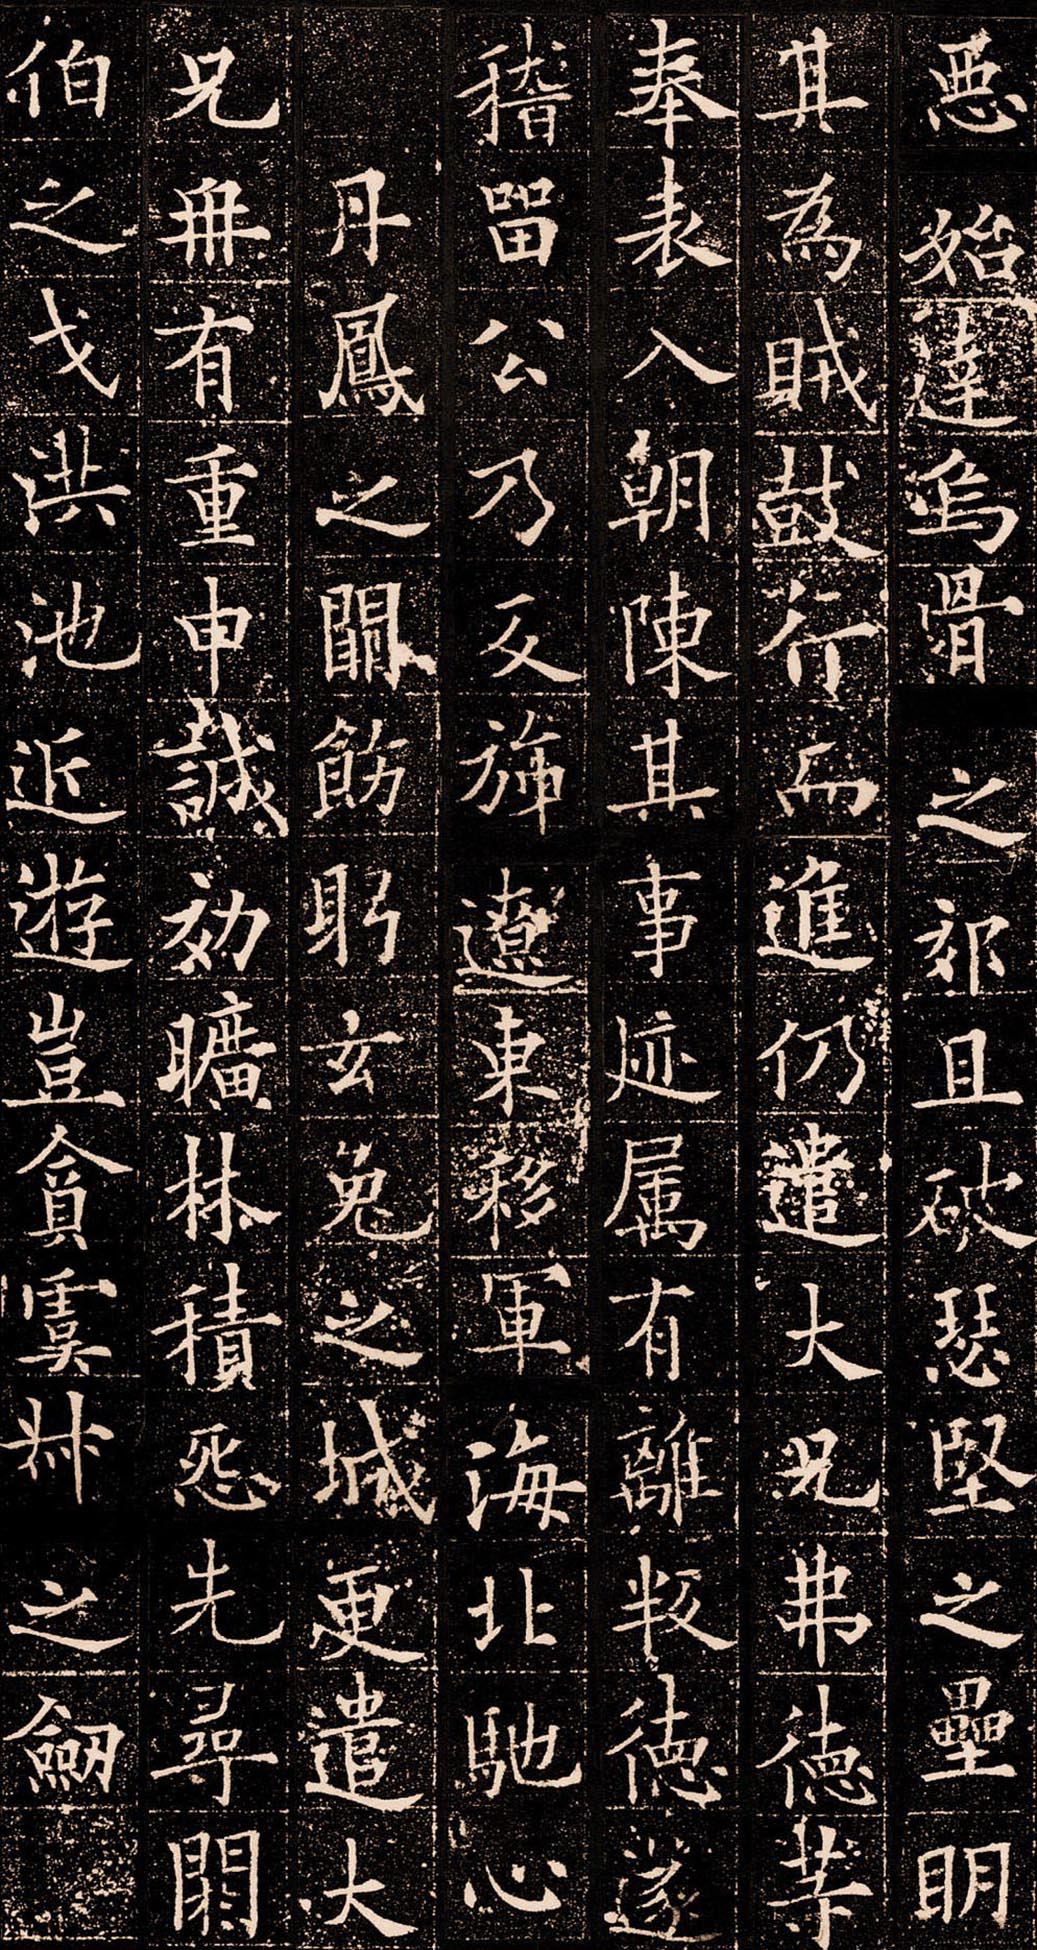 惡始達烏骨之郊且破瑟堅之壘明
其為賊鼓行而進仍遣大兄弗德等
奉表入朝陳其事迹属有離叛德遂
稽留公乃反旆遼東移軍海北馳心
丹鳳之闕飭躬玄兔之城更遣大
兄冉有重申誠効曠林積怨先尋閼
伯之戈洪池近遊豈貪虞叔之劒